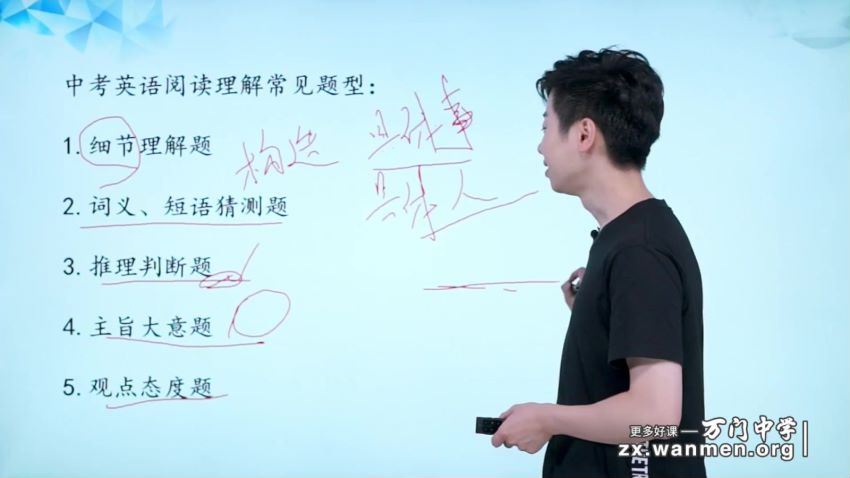 中考英语阅读理解常见题型：
1. 细节理解题
构造
具体事
具体人
2. 词义、短语猜测题
3. 推理判断题
4. 主旨大意题
5. 观点态度题
更多好课— 万门中学
zx.wanmen.org